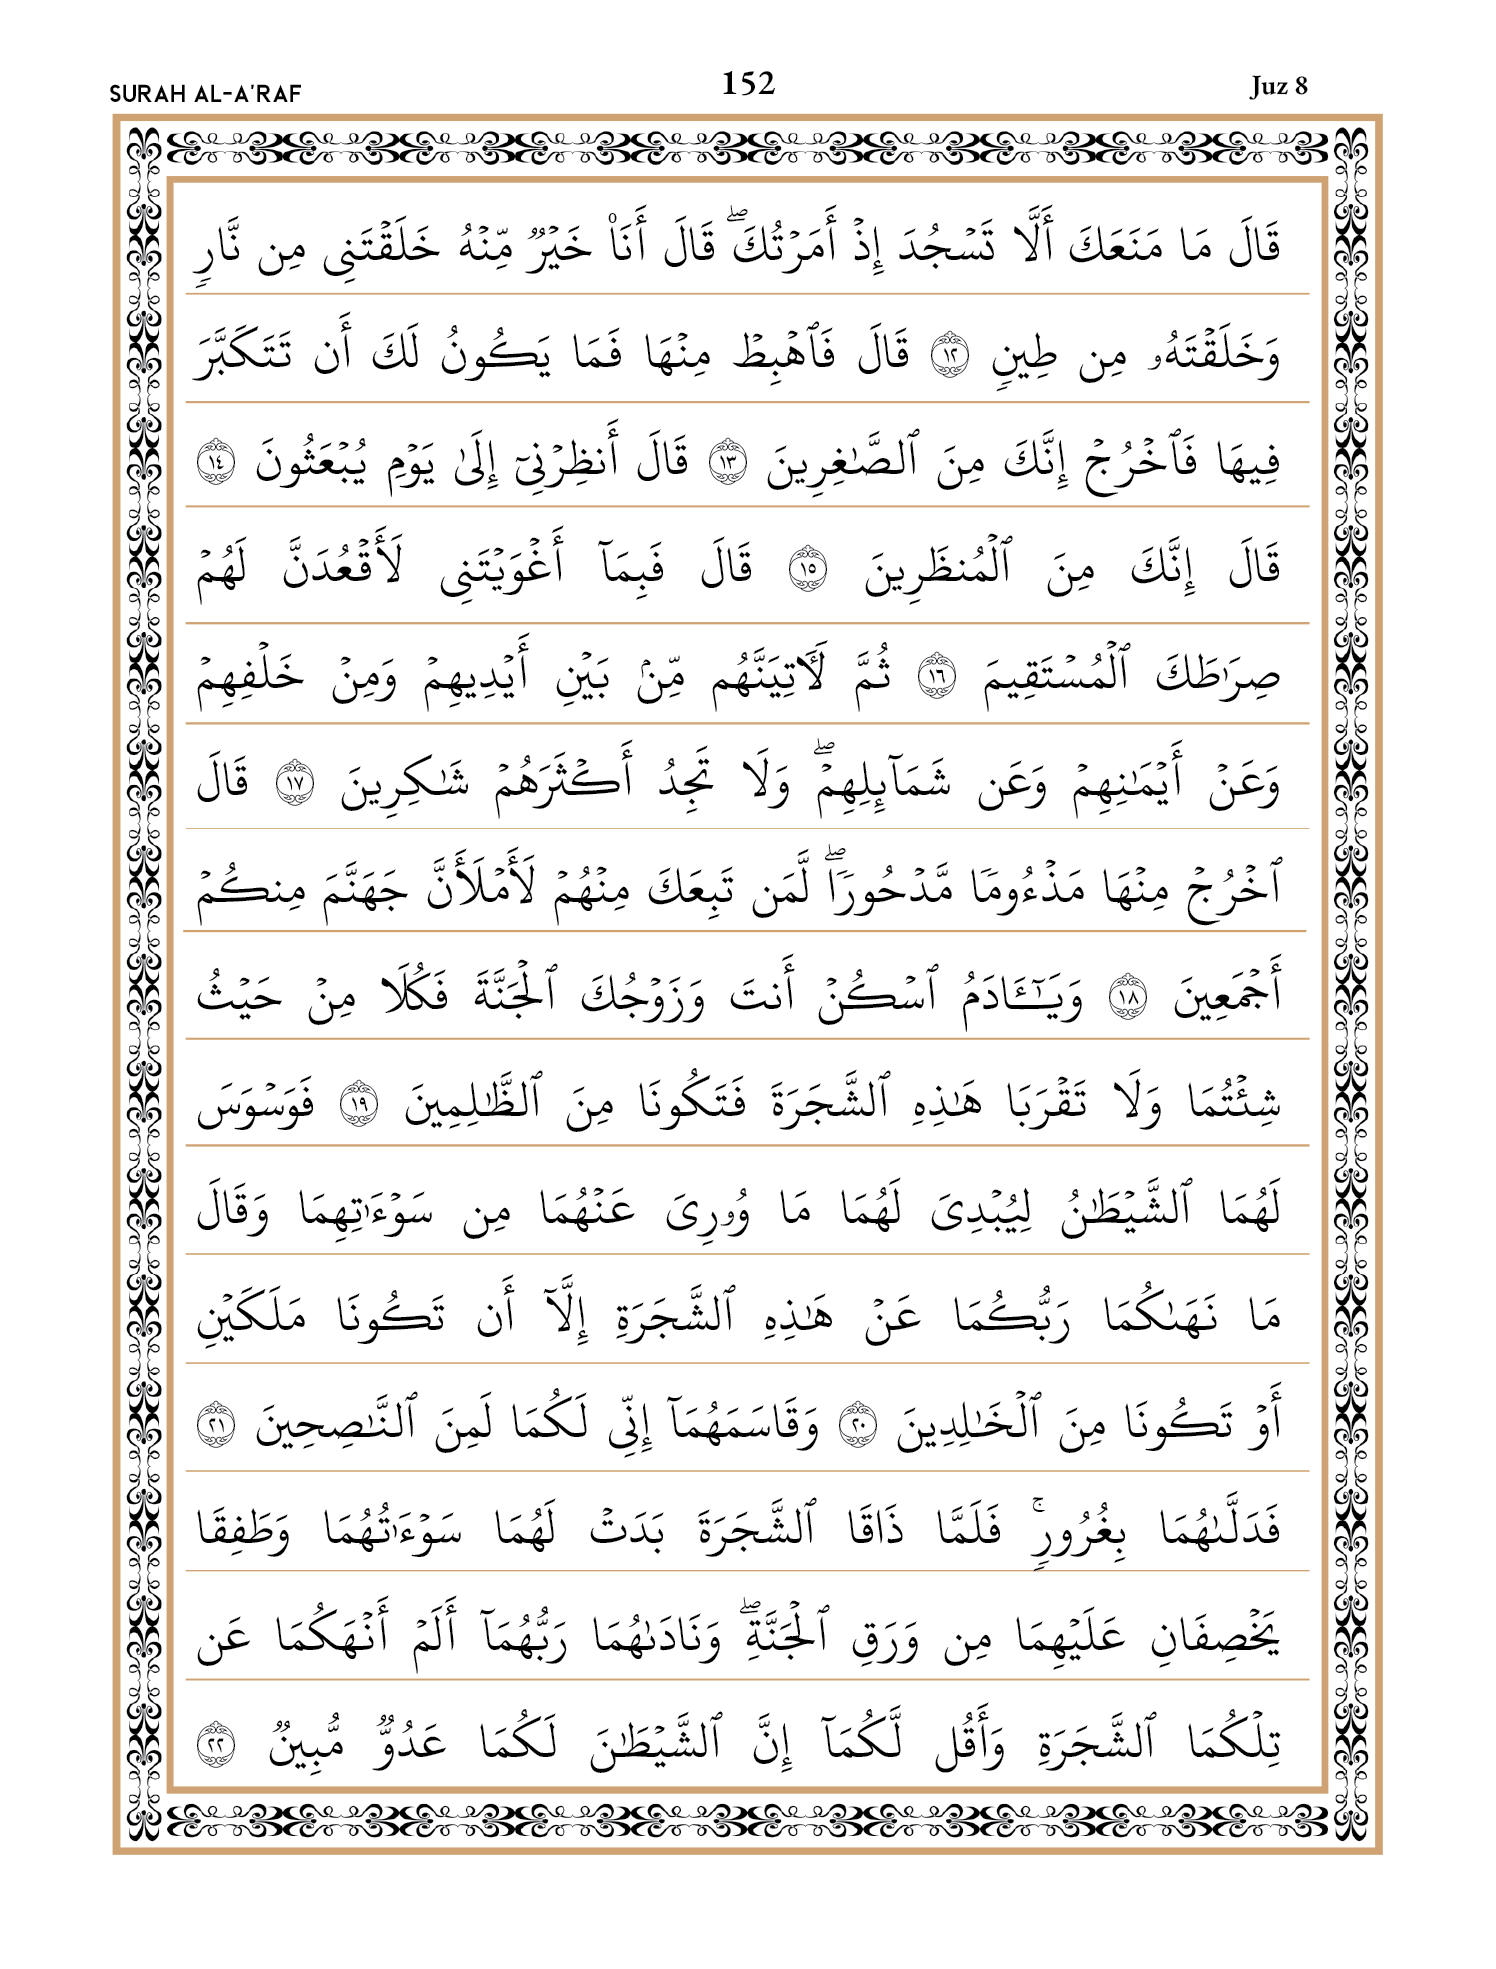 SURAH AL-A'RAF
152
Juz 8
قَالَ مَا مَنَعَكَ أَلَّا تَسۡجُدَ إِذۡ أَمَرۡتُكَۖ قَالَ أَنَا۠ خَيۡرٞ مِّنۡهُ خَلَقۡتَنِي مِن نَّارٖ
وَخَلَقۡتَهُۥ مِن طِينٖ ١٢ قَالَ فَٱهۡبِطۡ مِنۡهَا فَمَا يَكُونُ لَكَ أَن تَتَكَبَّرَ
فِيهَا فَٱخۡرُجۡ إِنَّكَ مِنَ ٱلصَّٰغِرِينَ ١٣ قَالَ أَنظِرۡنِيٓ إِلَىٰ يَوۡمِ يُبۡعَثُونَ ١٤
قَالَ إِنَّكَ مِنَ ٱلۡمُنظَرِينَ ١٥ قَالَ فَبِمَآ أَغۡوَيۡتَنِي لَأَقۡعُدَنَّ لَهُمۡ
صِرَٰطَكَ ٱلۡمُسۡتَقِيمَ ١٦ ثُمَّ لَأٓتِيَنَّهُم مِّنۢ بَيۡنِ أَيۡدِيهِمۡ وَمِنۡ خَلۡفِهِمۡ
وَعَنۡ أَيۡمَٰنِهِمۡ وَعَن شَمَآئِلِهِمۡۖ وَلَا تَجِدُ أَكۡثَرَهُمۡ شَٰكِرِينَ ١٧ قَالَ
ٱخۡرُجۡ مِنۡهَا مَذۡءُومٗا مَّدۡحُورٗاۖ لَّمَن تَبِعَكَ مِنۡهُمۡ لَأَمۡلَأَنَّ جَهَنَّمَ مِنكُمۡ
أَجۡمَعِينَ ١٨ وَيَٰٓـَٔادَمُ ٱسۡكُنۡ أَنتَ وَزَوۡجُكَ ٱلۡجَنَّةَ فَكُلَا مِنۡ حَيۡثُ
شِئۡتُمَا وَلَا تَقۡرَبَا هَٰذِهِ ٱلشَّجَرَةَ فَتَكُونَا مِنَ ٱلظَّٰلِمِينَ ١٩ فَوَسۡوَسَ
لَهُمَا ٱلشَّيۡطَٰنُ لِيُبۡدِيَ لَهُمَا مَا وُۥرِيَ عَنۡهُمَا مِن سَوۡءَٰتِهِمَا وَقَالَ
مَا نَهَىٰكُمَا رَبُّكُمَا عَنۡ هَٰذِهِ ٱلشَّجَرَةِ إِلَّآ أَن تَكُونَا مَلَكَيۡنِ
أَوۡ تَكُونَا مِنَ ٱلۡخَٰلِدِينَ ٢٠ وَقَاسَمَهُمَآ إِنِّي لَكُمَا لَمِنَ ٱلنَّٰصِحِينَ ٢١
فَدَلَّىٰهُمَا بِغُرُورٖۚ فَلَمَّا ذَاقَا ٱلشَّجَرَةَ بَدَتۡ لَهُمَا سَوۡءَٰتُهُمَا وَطَفِقَا
يَخۡصِفَانِ عَلَيۡهِمَا مِن وَرَقِ ٱلۡجَنَّةِۖ وَنَادَىٰهُمَا رَبُّهُمَآ أَلَمۡ أَنۡهَكُمَا عَن
تِلۡكُمَا ٱلشَّجَرَةِ وَأَقُل لَّكُمَآ إِنَّ ٱلشَّيۡطَٰنَ لَكُمَا عَدُوّٞ مُّبِينٞ ٢٢